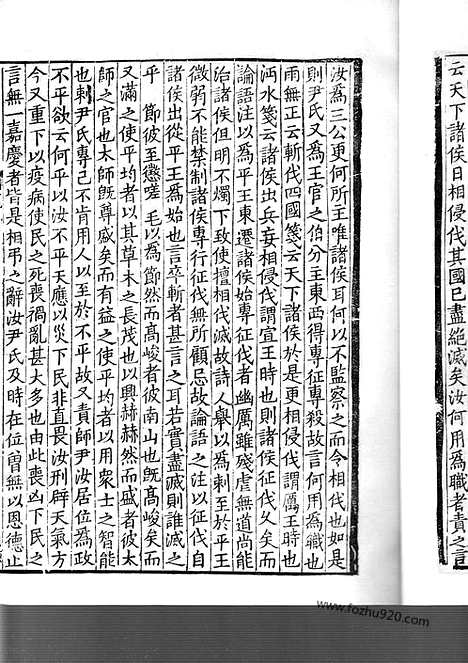 云天下諸侯日相侵伐其國已盡絕滅矣汝何用爲職者責之言
汝爲三公更何所主唯諸侯耳何以不監察之而令相伐也如是
則尹氏又爲王官之伯分主東西得專征專殺故言何用爲職也
雨無正云斬伐四國箋云天下諸侯於是更相侵伐謂厲王時也
沔水箋云諸侯出兵妄相侵伐謂宣王時也則諸侯征伐久矣而
論語注以爲平王東遷諸侯始專征伐者幽厲雖殘虐無道尚能
治諸侯但明不燭下致使擅相伐滅故詩人舉以爲刺至於平王
微弱不能禁制諸侯專行征伐無所顧忌故論語之注以征伐自
諸侯出從平王爲始也言卒斬者甚言之耳若實盡滅則誰滅之
乎 節彼至懲嗟 毛以爲節然而高峻者彼南山也既高峻矣而
又滿之使平均者以其草木之長茂也以興赫赫然而盛者彼太
師之官也太師既尊盛矣而有益之使平均者以用衆士之智能
也刺尹氏專己不肯用人以至於不平故又責師尹汝居位爲政
不平欲云何乎以汝不平天應以災下民非直畏汝刑辟天氣方
今又重下以疫病使民之死喪禍亂甚大多也由此喪凶下民之
言無一嘉慶者皆是相弔之辭汝尹氏及時在位曾無以恩德止
www.fozhu920.com